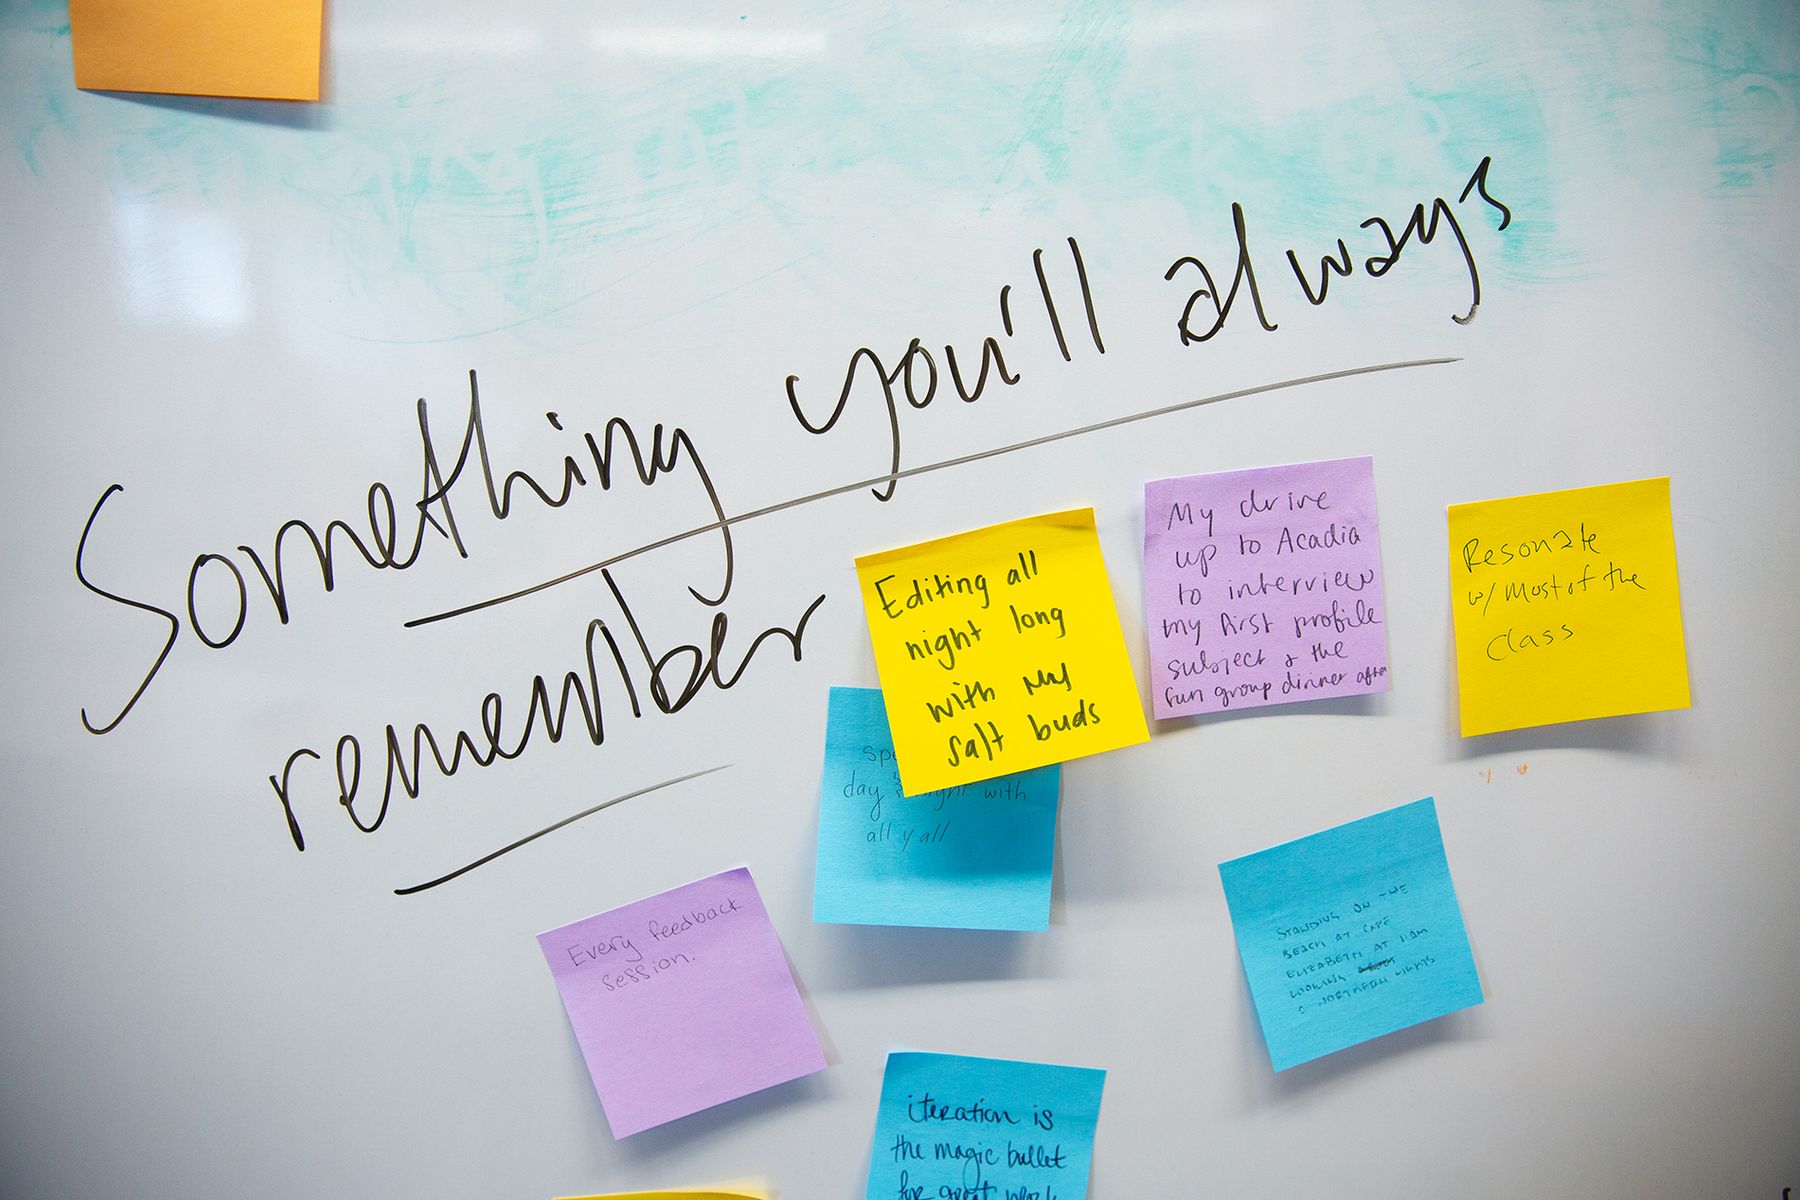 Something you'll always
remember
Editing all
night long
with my
salt buds
My drive
up to Acadia
to interview
my first profile
subject & the
fun group dinner after
Resonate
w/ Most of the
class
day night with
all y'all
Every feedback
session.
STANDING ON THE
BEACH AT CAPE
ELIZABETH AT 11AM
LOOKING LIGHTS
NORTHERN
iteration is
the magic bullet
for great work